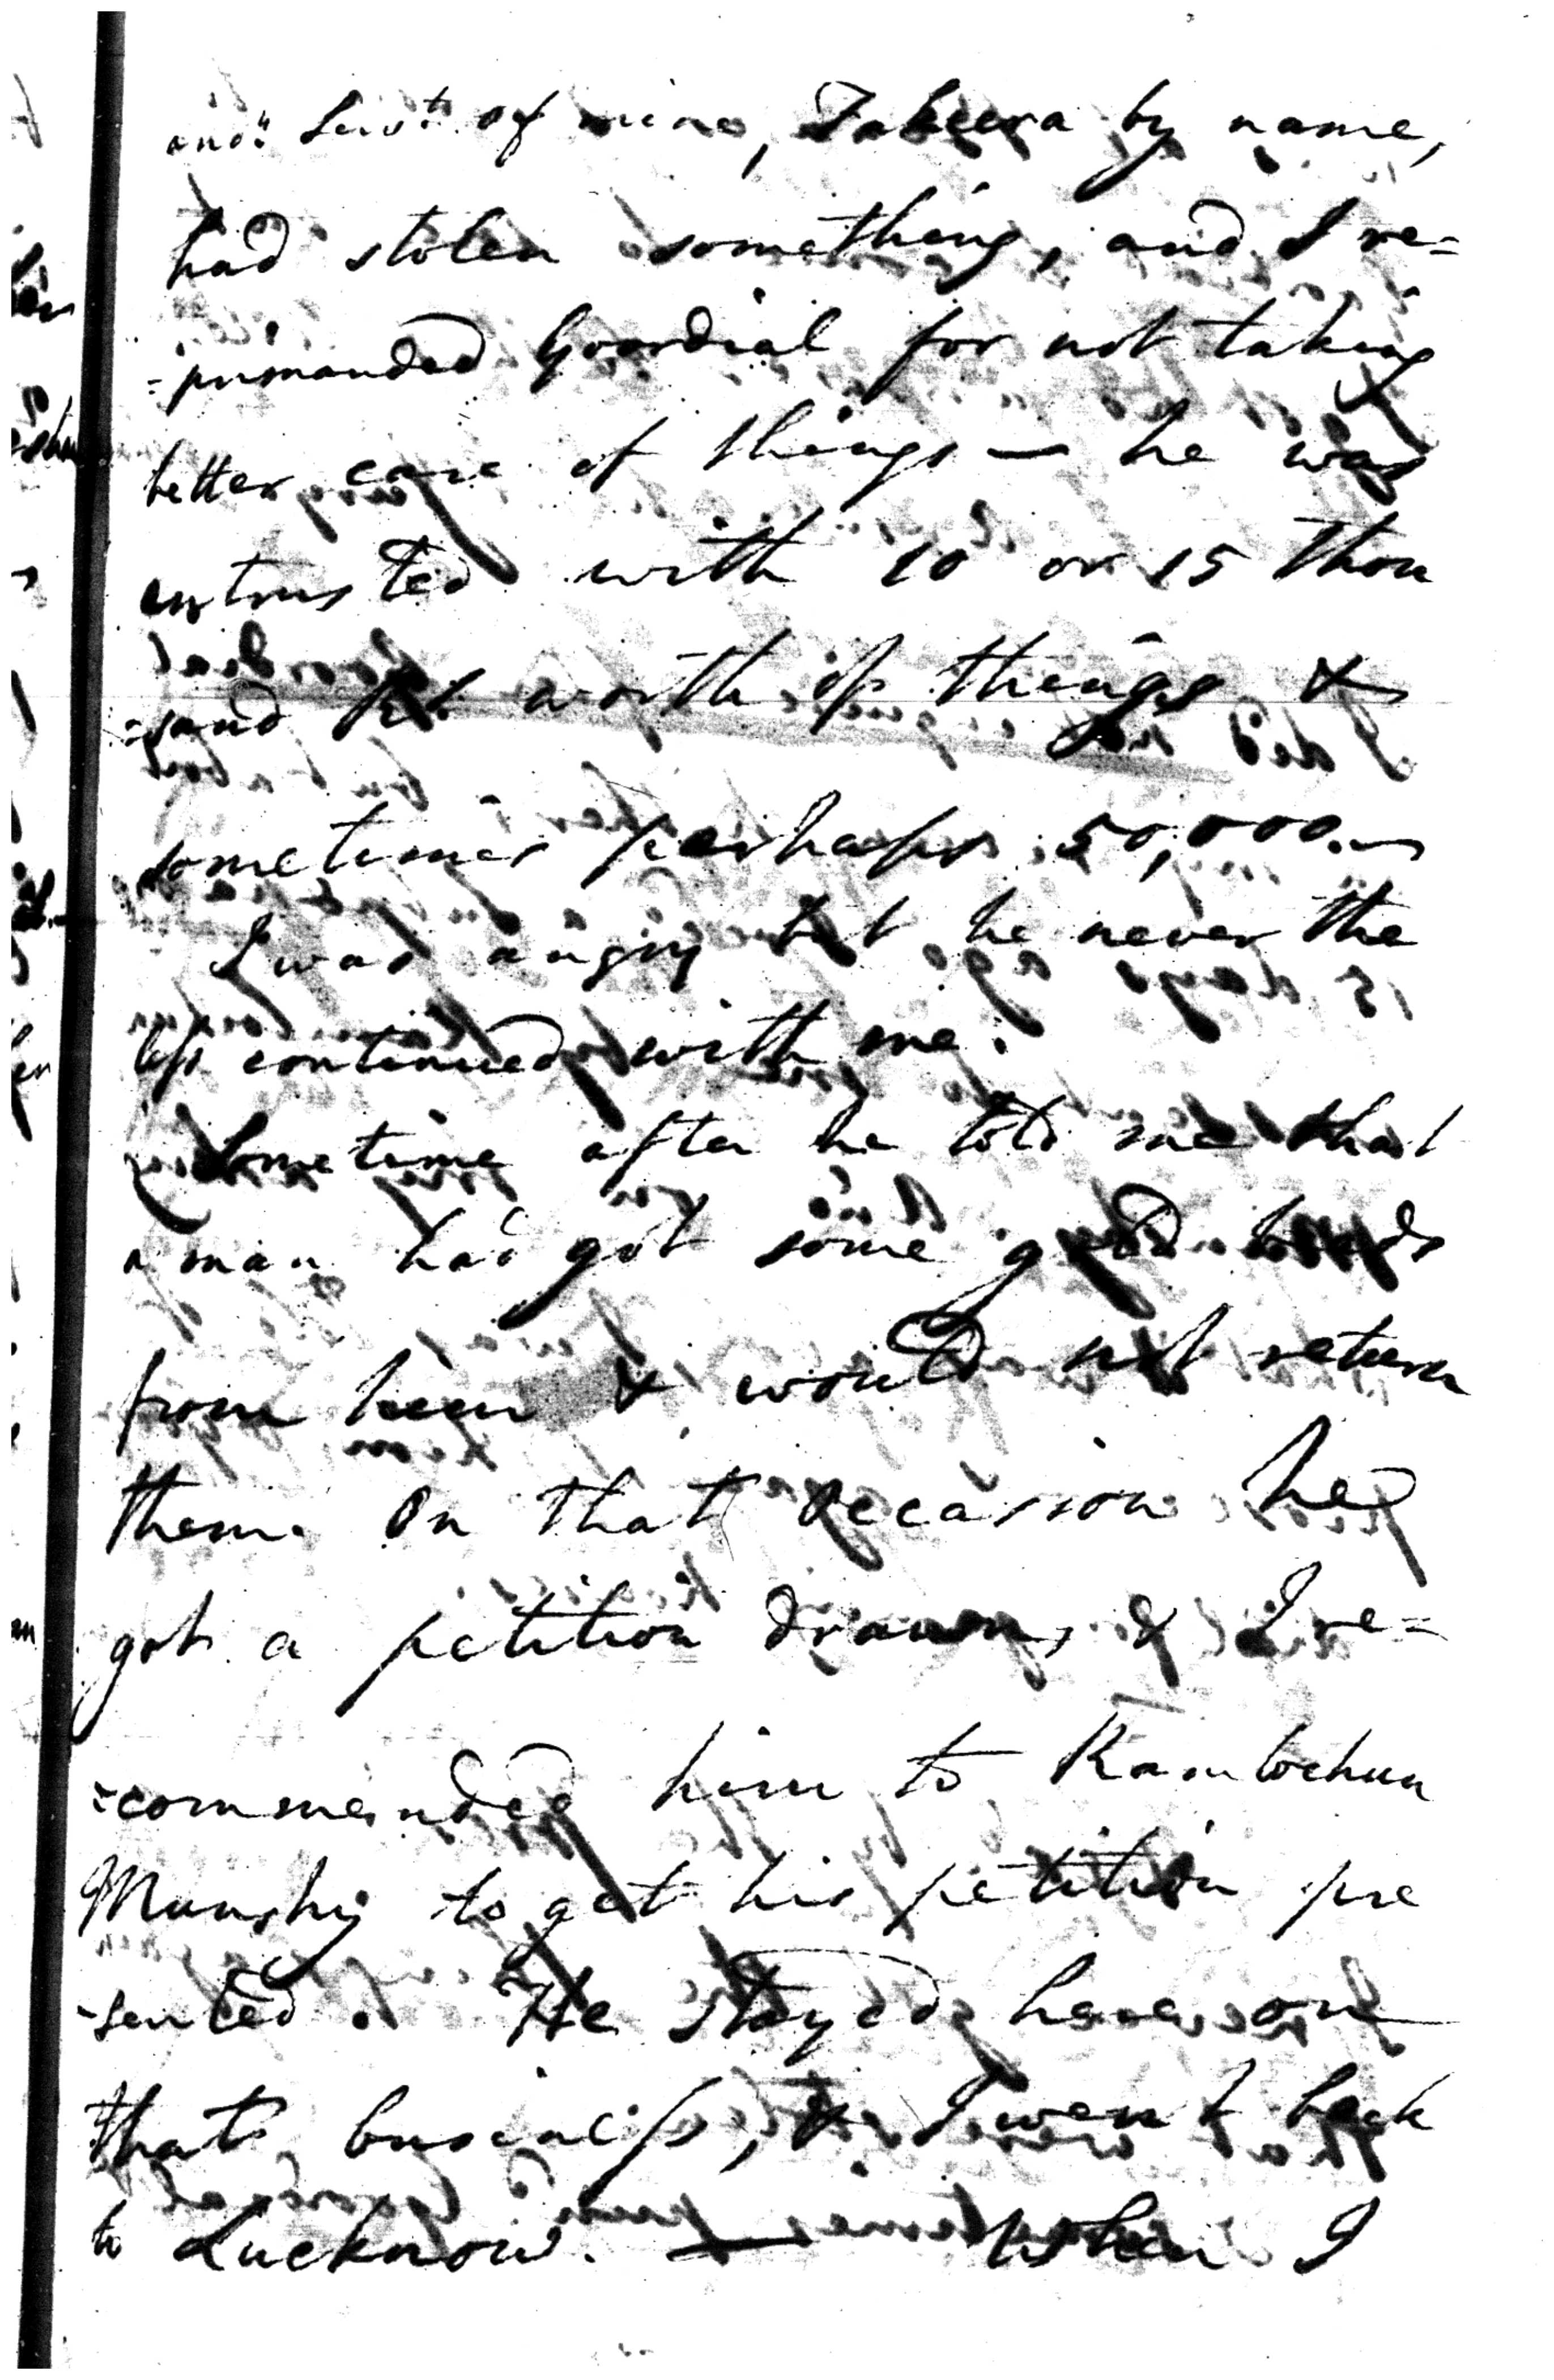 ano.r Serv.t of mine, Fakeera by name,
had stolen something, and I re=
=primanded Goordial for not taking
better care of things — he was
entrusted with 10 or 15 thou
=sand Rs worth of things &
sometimes perhaps 50,000. —
I was angry but he never the
less continued with me.
Sometime after he told me that
a man had got some gold beads
from him & would not return
them. On that occasion he
got a petition drawn, & I re=
=commended him to Ramlochun
Munshy to get his petition pre
-sented. He stayed here on
that business, & I went back
to Lucknow. — When I